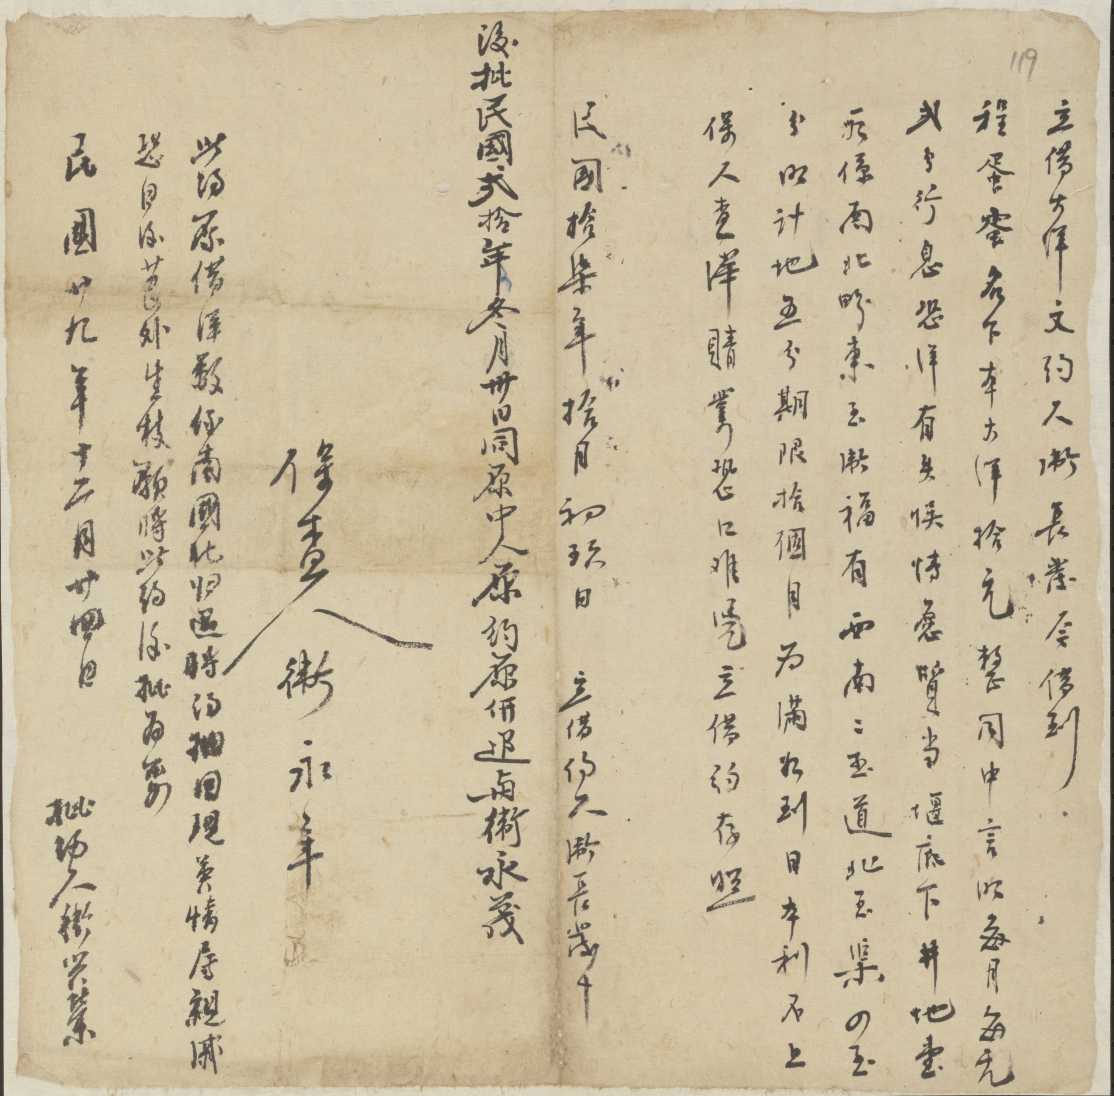 119
立借大洋文約人衛長歲今借到
程蛋蛮名下本大洋拾元整同中言明每月每元
弍分行息恐洋有失悞情愿質当堰底下井地壹
段係南北畛東至衛福有西南二至道北至渠四至
分明計地五分期限拾個月为滿如到日本利不上
保人查洋賍業恐口难凭立借約存照
民國拾柒年拾月初玖日 立借約人衛長歲十
後批民國弍拾年冬月卅日同原中人原約原併退与衛咏茂
保查人衛永年
此約原借洋数係南國北归還時約抽回現英情房親滅
恐日後节外生枝願將此約後批为要
民國廿九年十二月廿四日 批約人衛兴業